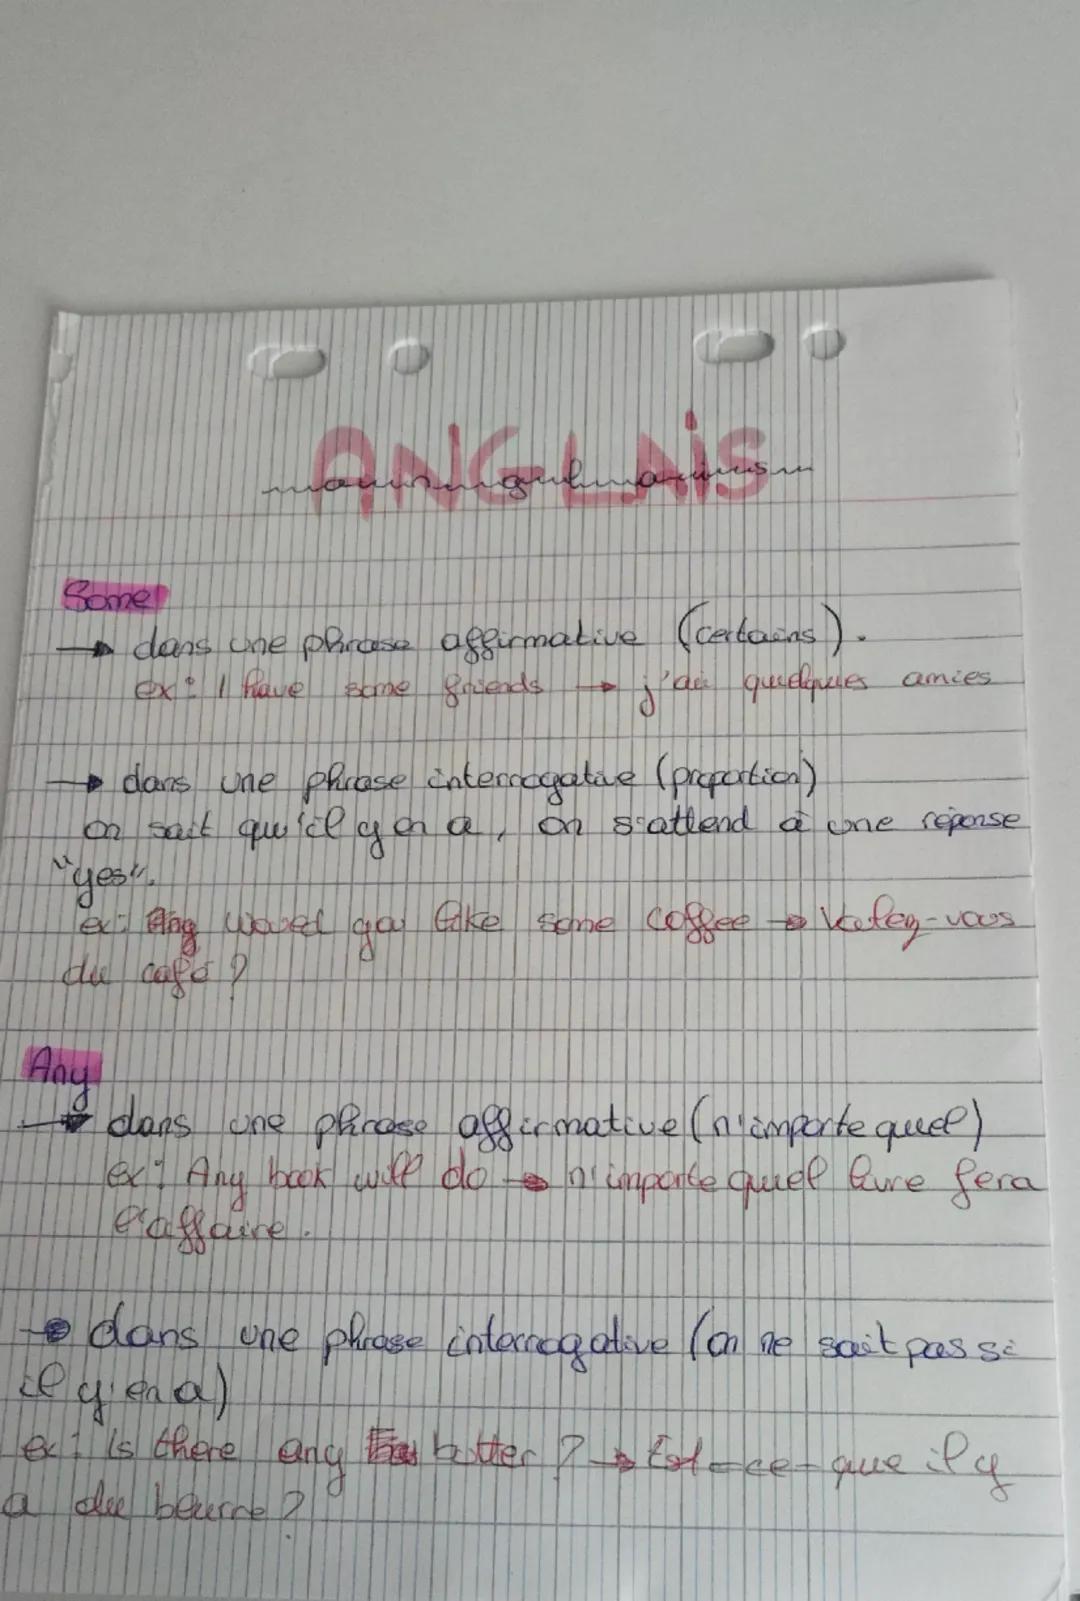 ANGLAIS
Some
→ dans une phrase affirmative (certains).
ex: I have some friends → j'ai quelques amies
→ dans une phrase interrogative (proportion)
on sait qu'il y en a, on s'attend à une réponse
"yes".
ex: some coffee → Voulez-vous
du café ?
Any
→ dans une phrase affirmative (n'importe quel)
ex: Any book will do → n'importe quel livre fera
l'affaire.
→ dans une phrase interrogative (on ne sait pas si
il y en a)
ex: Is there any butter ? → Est-ce-que il y
a du beurre ?